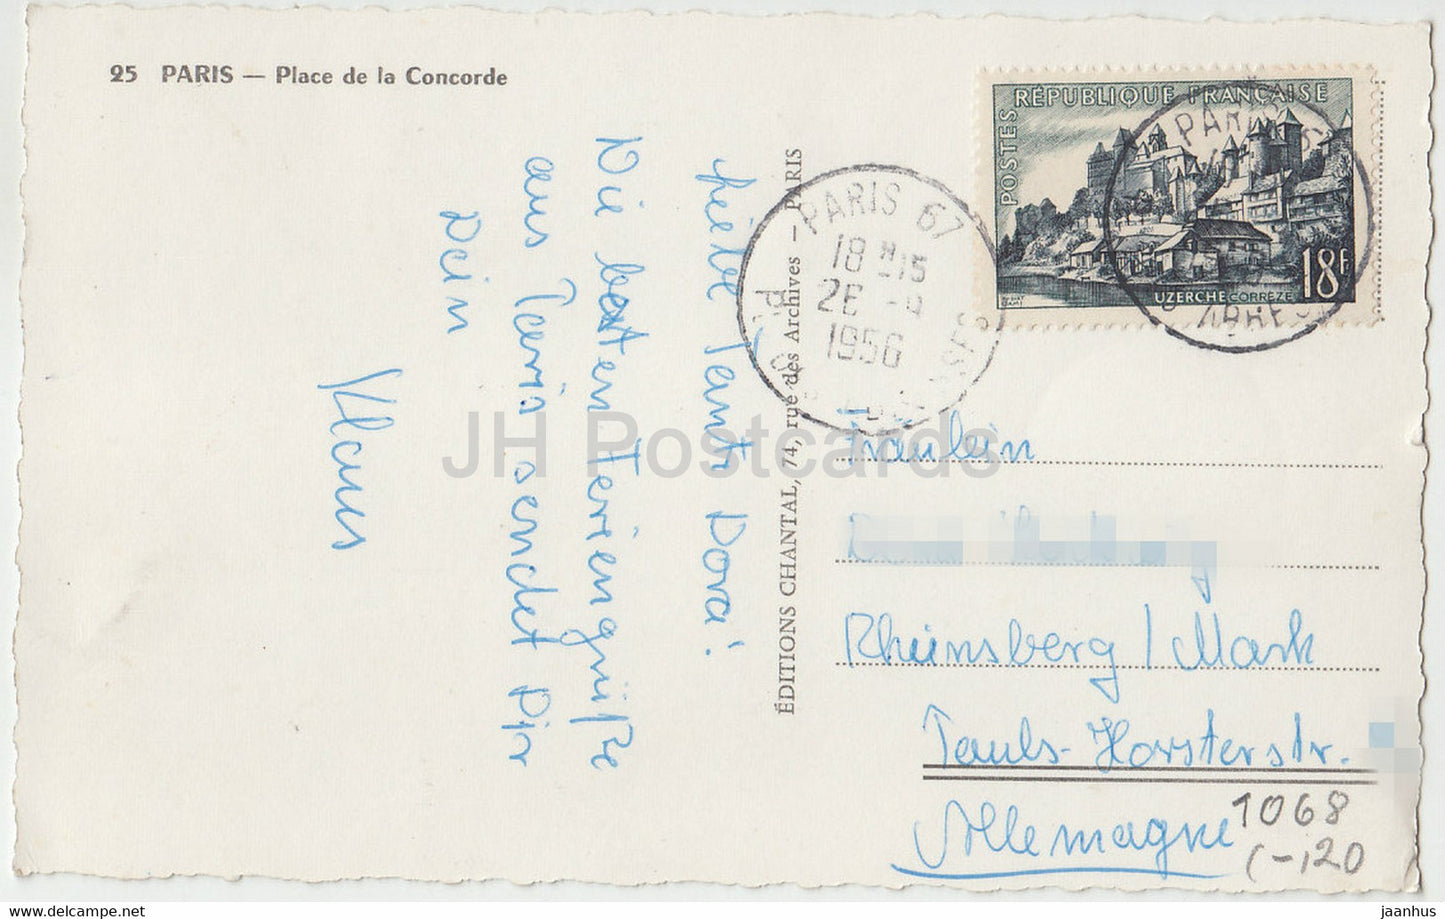 25 PARIS — Place de la Concorde
Liebe Tante Dora!
Die besten Feriengrüße
aus Paris sendet Dir
Dein
Klaus
ÉDITIONS CHANTAL, 74, rue des Archives — PARIS
PARIS 67
18 H 15
26 -9
1956
RÉPUBLIQUE FRANÇAISE
POSTES
UZERCHE CORRÈZE
18F
PARIS
Fräulein
Rheinsberg / Mark
Pauls-Horsterstr.
Allemagne
1068
(-,20
JH Postcards
www.jhpostcards.com
jaanhus